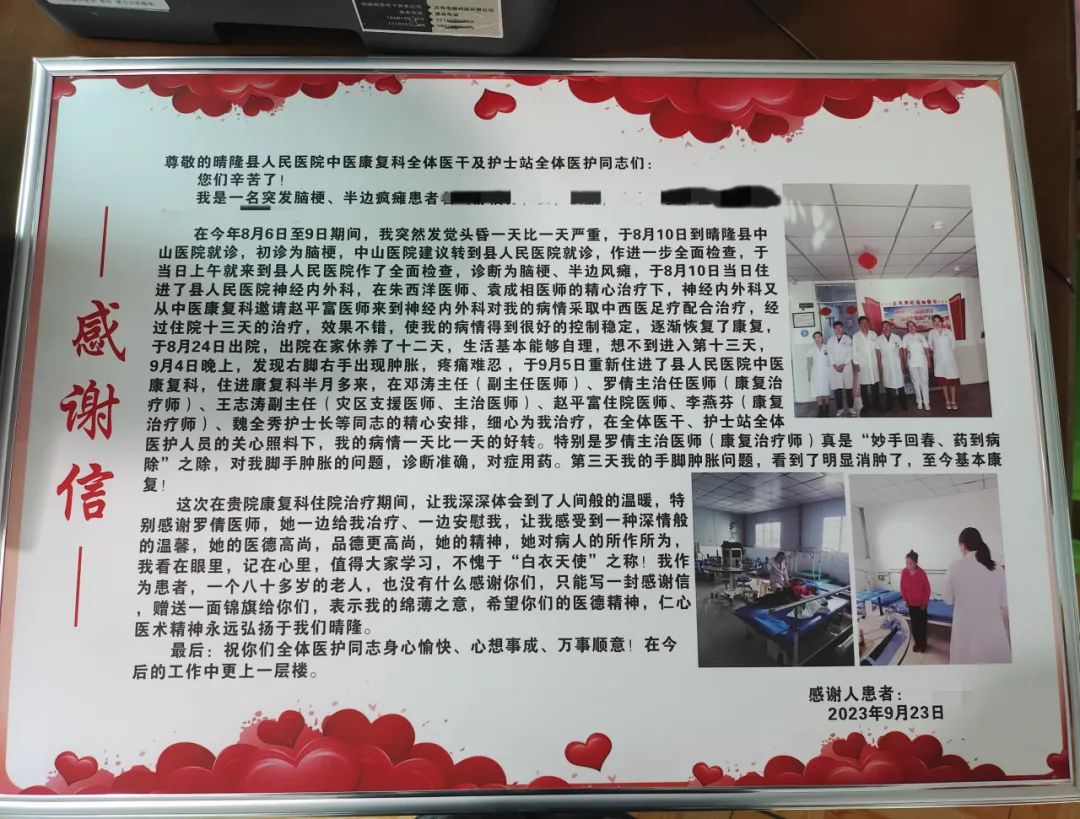 感谢信
尊敬的晴隆县人民医院中医康复科全体医干及护士站全体医护同志们：
您们辛苦了！
我是一名突发脑梗、半边疯瘫患者
在今年8月6日至9日期间，我突然发觉头昏一天比一天严重，于8月10日到晴隆县中
山医院就诊，初诊为脑梗，中山医院建议转到县人民医院就诊，作进一步全面检查，于
当日上午就来到县人民医院作了全面检查，诊断为脑梗、半边风瘫，于8月10日当日住
进了县人民医院神经内外科，在朱西洋医师、袁成相医师的精心治疗下，神经内外科又
从中医康复科邀请赵平富医师来到神经内外科对我的病情采取中西医足疗配合治疗，经
过住院十三天的治疗，效果不错，使我的病情得到很好的控制稳定，逐渐恢复了康复，
于8月24日出院，出院在家休养了十二天，生活基本能够自理，想不到进入第十三天，
9月4日晚上，发现右脚右手出现肿胀，疼痛难忍，于9月5日重新住进了县人民医院中医
康复科，住进康复科半月多来，在邓涛主任（副主任医师）、罗倩主治任医师（康复治
疗师）、王志涛副主任（灾区支援医师、主治医师）、赵平富住院医师、李燕芬（康复
治疗师）、魏全秀护士长等同志的精心安排，细心为我治疗，在全体医干、护士站全体
医护人员的关心照料下，我的病情一天比一天的好转。特别是罗倩主治医师（康复治疗师）真是“妙手回春、药到病
除”之除，对我脚手肿胀的问题，诊断准确，对症用药。第三天我的手脚肿胀问题，看到了明显消肿了，至今基本康
复！
这次在贵院康复科住院治疗期间，让我深深体会到了人间般的温暖，特
别感谢罗倩医师，她一边给我冶疗、一边安慰我，让我感受到一种深情般
的温馨，她的医德高尚，品德更高尚，她的精神，她对病人的所作所为，
我看在眼里，记在心里，值得大家学习，不愧于“白衣天使”之称！我作
为患者，一个八十多岁的老人，也没有什么感谢你们，只能写一封感谢信
，赠送一面锦旗给你们，表示我的绵薄之意，希望你们的医德精神，仁心
医术精神永远弘扬于我们晴隆。
最后：祝你们全体医护同志身心愉快、心想事成、万事顺意！在今
后的工作中更上一层楼。
感谢人患者：
2023年9月23日